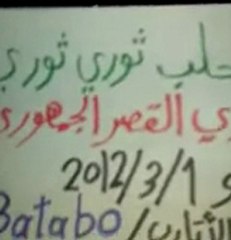 حلب ثوري ثوري
القصر الجمهوري
2012/3/19
Batabo
الأتارب/